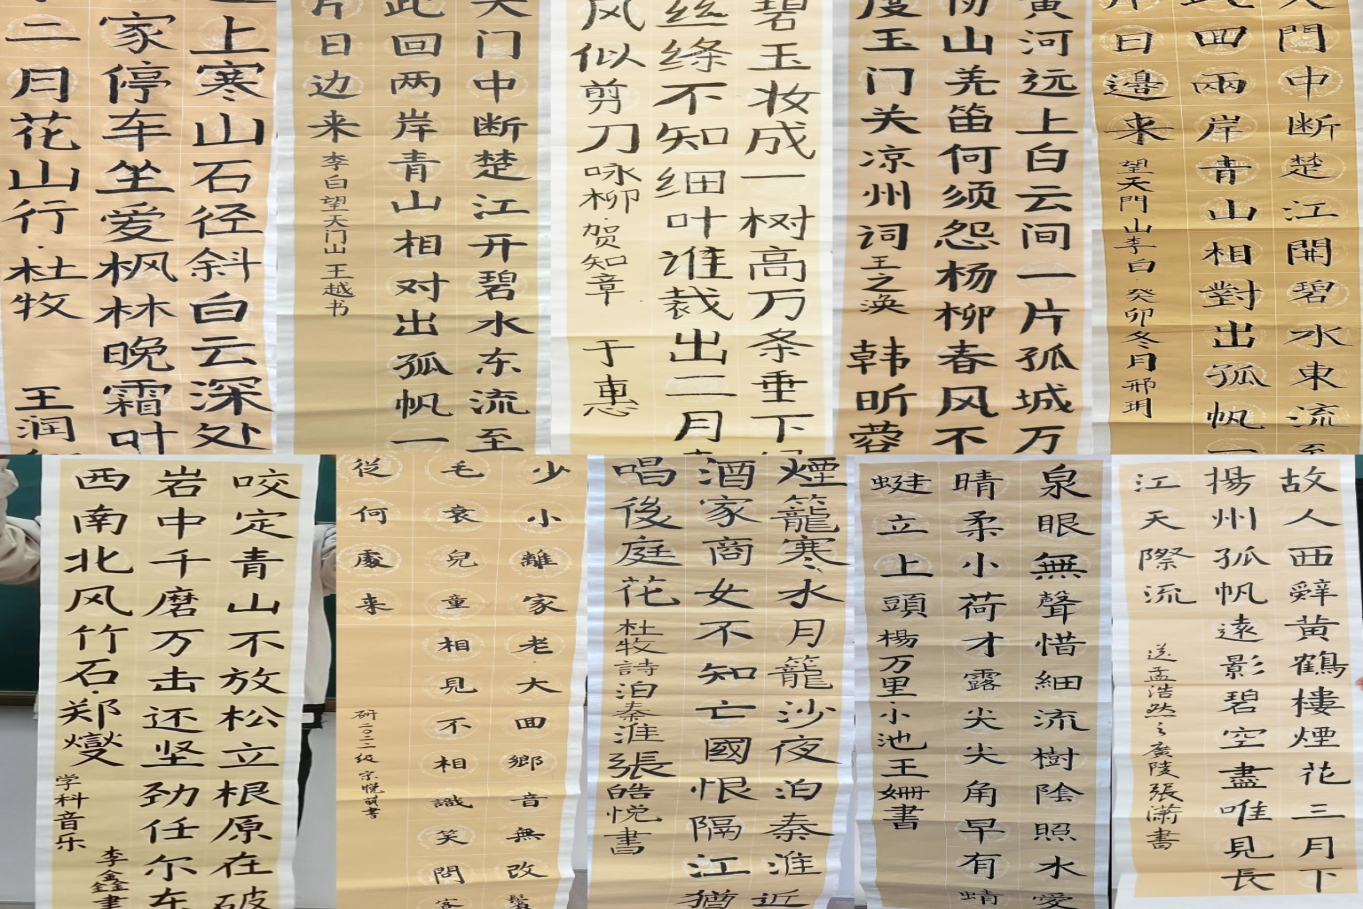 上寒山石径斜白云深处
家停车坐爱枫林晚霜叶
二月花山行·杜牧 王润
天门中断楚江开碧水东流至
此回两岸青山相对出孤帆一
片日边来 李白望天门山 王越书
碧玉妆成一树高万条垂下
丝绦不知细叶谁裁出二月
风似剪刀 咏柳·贺知章 于惠
黄河远上白云间一片孤城万
仞山羌笛何须怨杨柳春风不
度玉门关 凉州词 王之涣 韩昕蓉
門中断楚江開碧水東流至
此回兩岸青山相對出孤帆一
日邊来 望天門山李白 癸卯冬月邢玥
咬定青山不放松立根原在破
岩中千磨万击还坚劲任尔东
西南北风竹石·郑燮
学科音乐
李金鑫書
少小離家老大回鄉音無改鬢
毛衰兒童相見不相識笑問客
從何處来
研二〇二二级
煙籠寒水月籠沙夜泊秦淮近
酒家商女不知亡國恨隔江猶
唱後庭花 杜牧詩泊秦淮 張皓悦書
泉眼無聲惜細流樹陰照水愛
晴柔小荷才露尖尖角早有蜻
蜓立上頭 楊万里·小池 王姗書
故人西辭黄鶴樓煙花三月下
揚州孤帆遠影碧空盡唯見長
江天際流
送孟浩然之廣陵 張瀟書